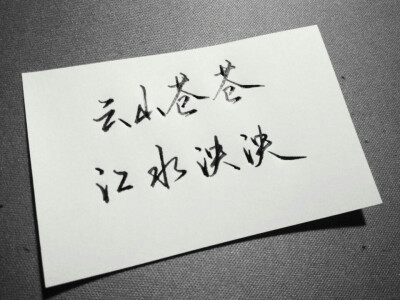 云山苍苍
江水泱泱